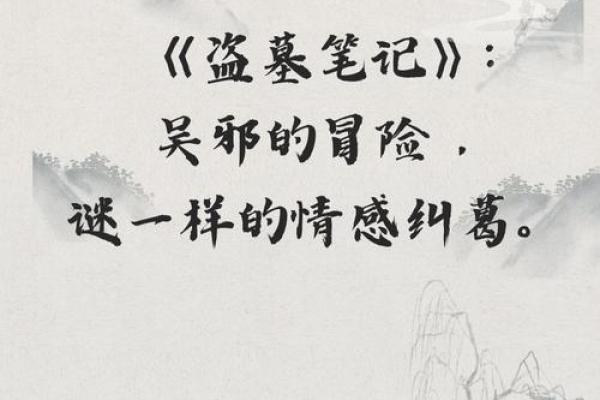 《盗墓笔记》:
吴邪的冒险，
谜一样的情感纠葛。